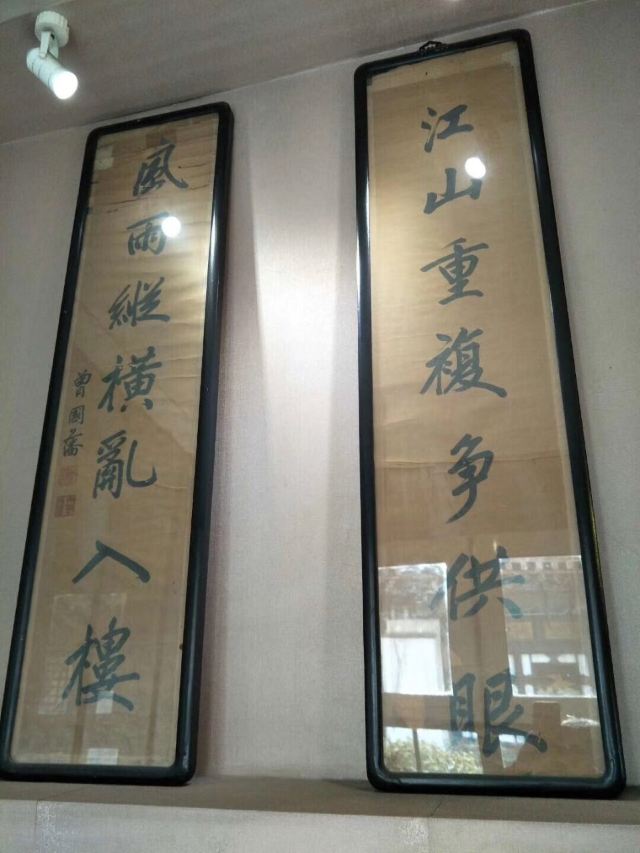 江山重複争供眼
風雨縱横亂入樓
曾國藩